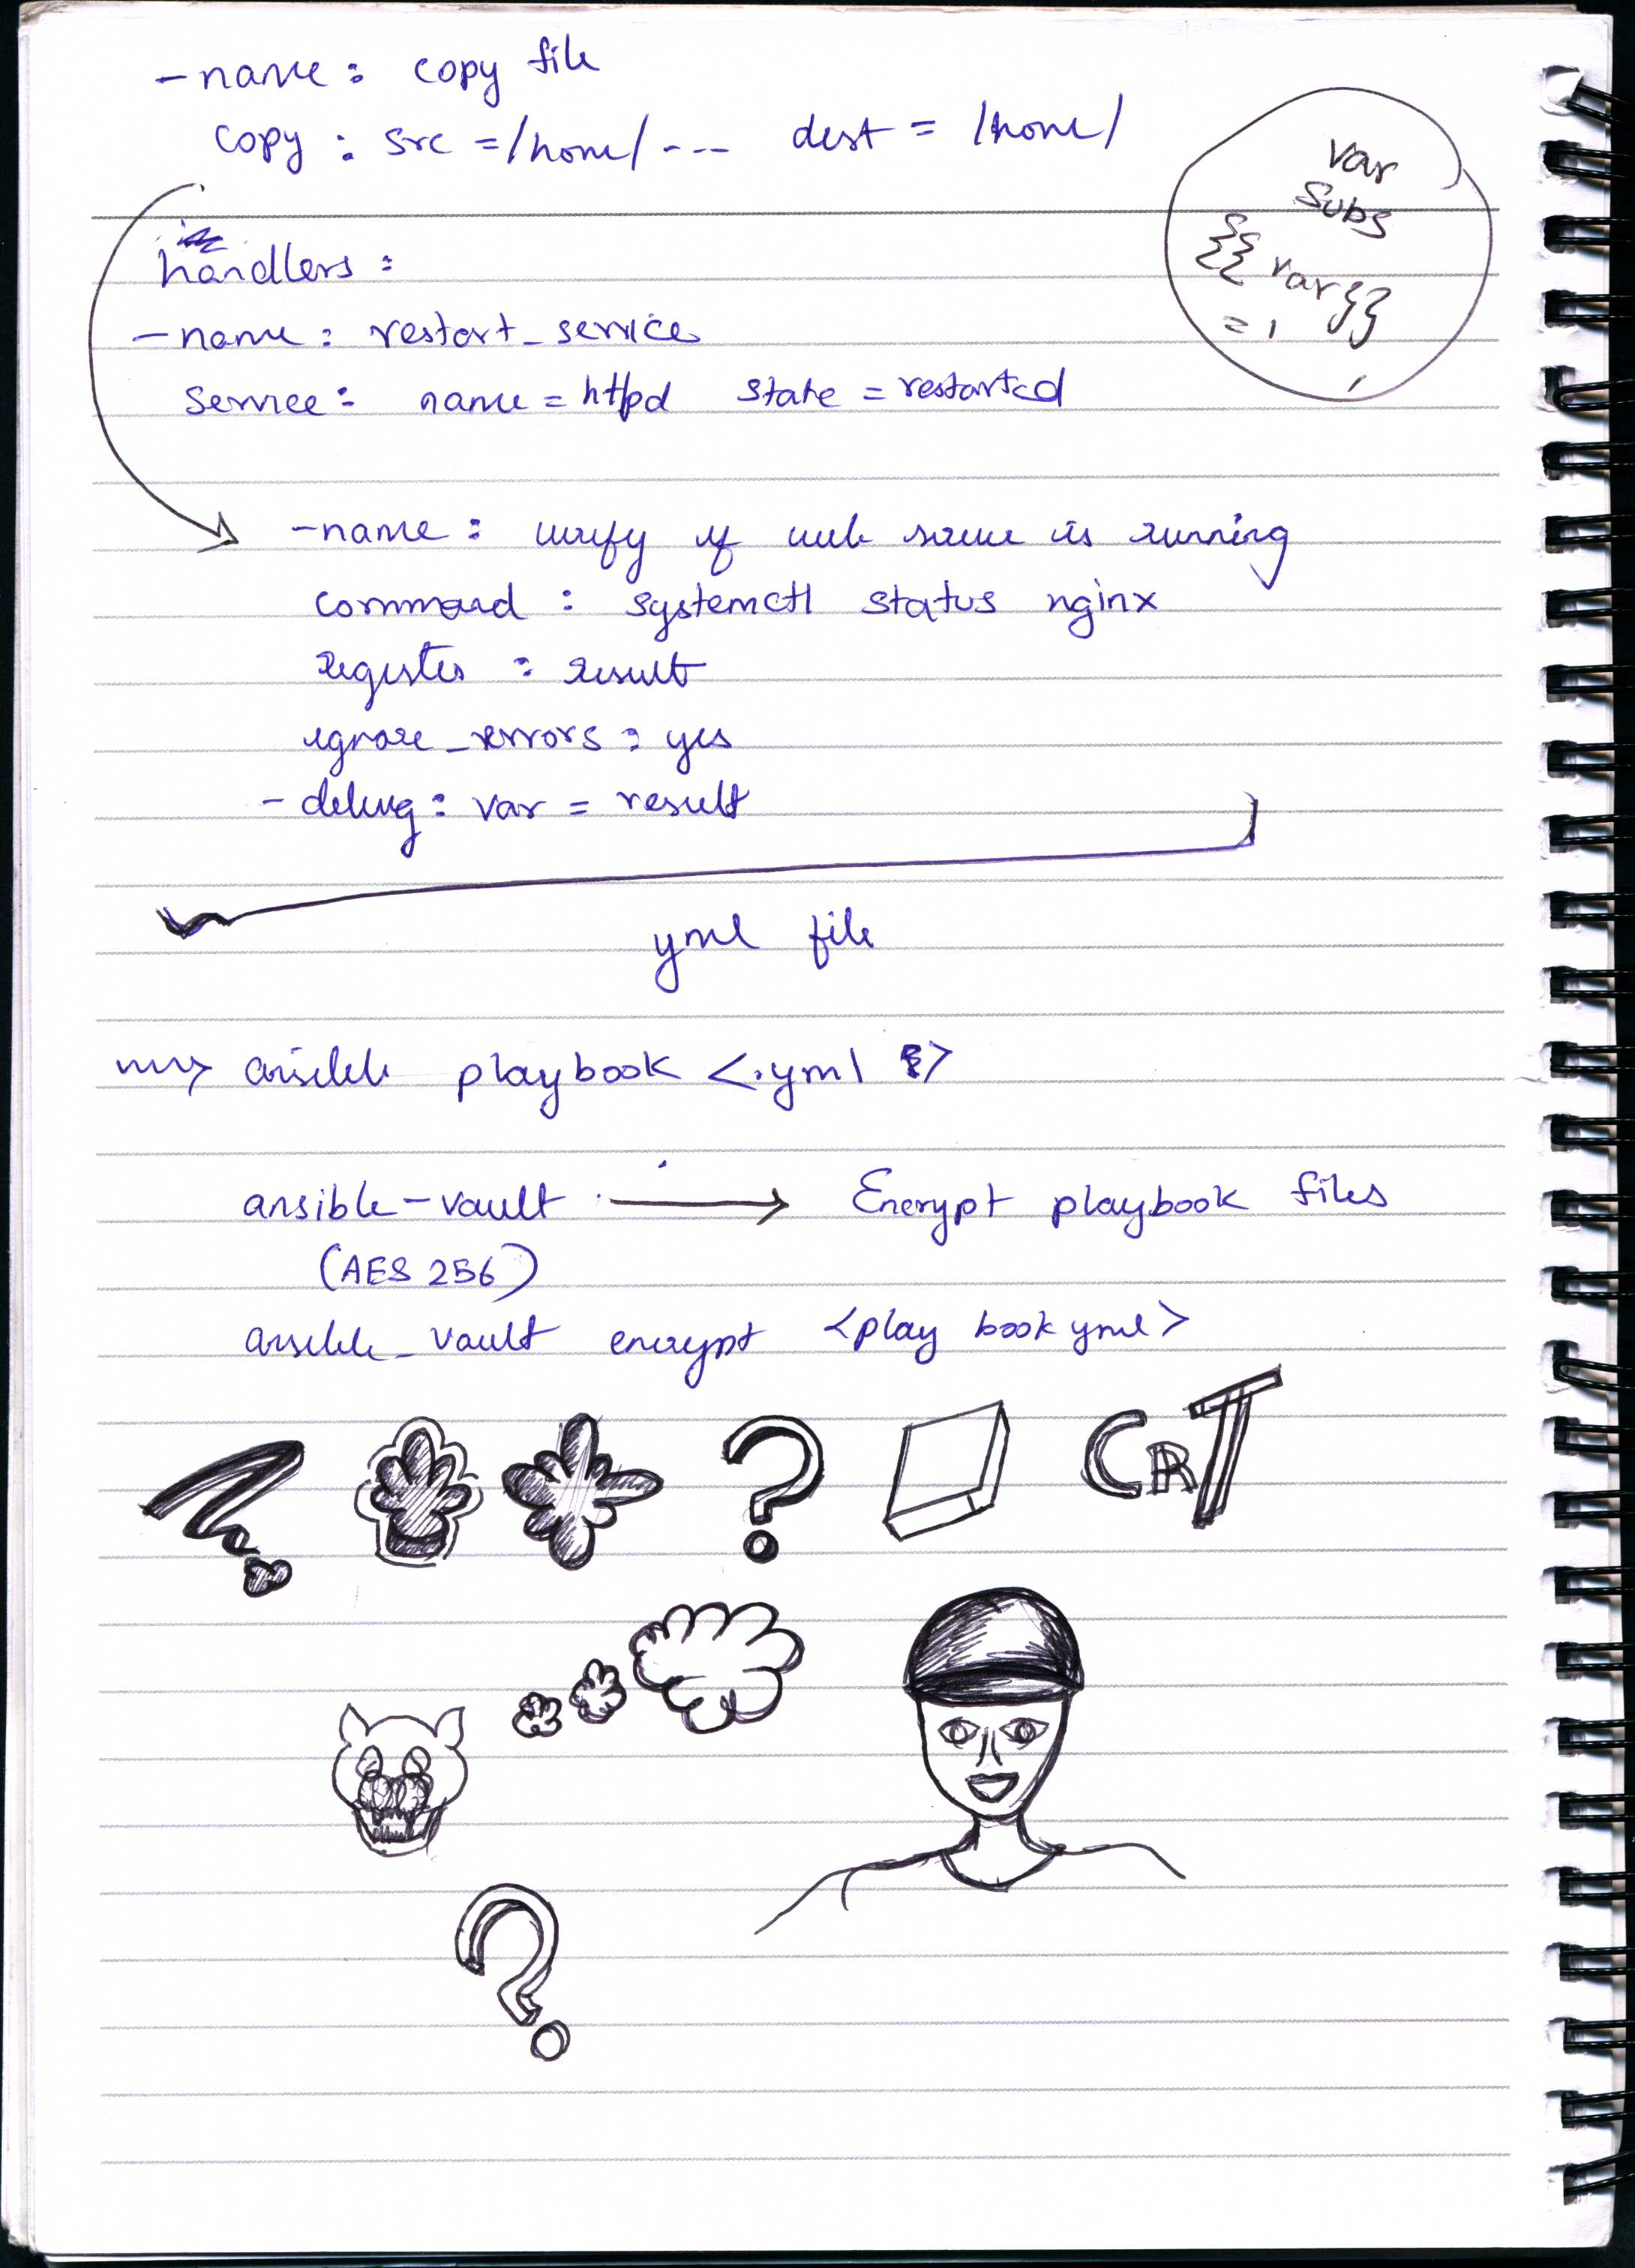 -name: copy file
copy: src =/home/--- dest = /home/
var
subs
{{ var }}
= 1
handlers:
-name: restart_service
service: name = httpd state = restarted
-name: verify if web serve is running
command: systemctl status nginx
register: result
ignore_errors: yes
- debug: var = result
yml file
ansible playbook <.yml >
ansible-vault → Encrypt playbook files
(AES 256)
ansible_vault encrypt <play book yml>
? CRT
?